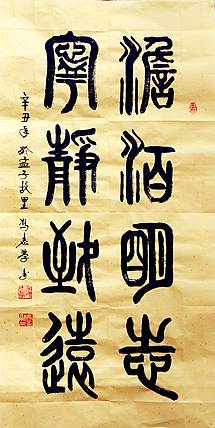 澹泊明志
寧靜致遠
辛丑年於孟子故里馮志㳟書